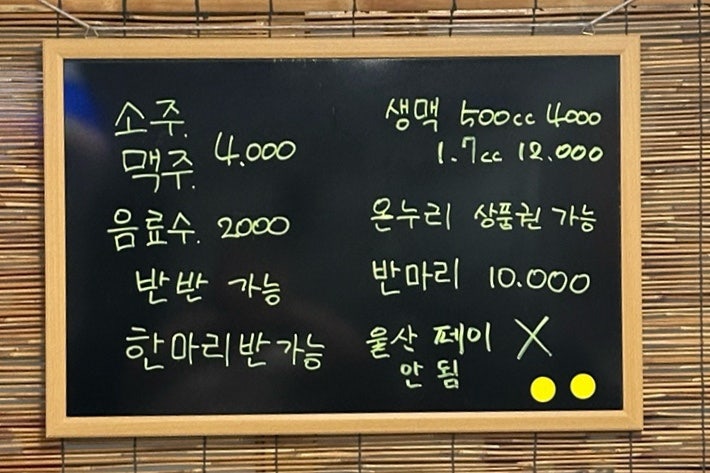 소주.
맥주. 4.000
음료수. 2000
반반 가능
한마리반가능
생맥 500cc 4000
1.7cc 12.000
온누리 상품권 가능
반마리 10.000
울산 페이 X
안 됨